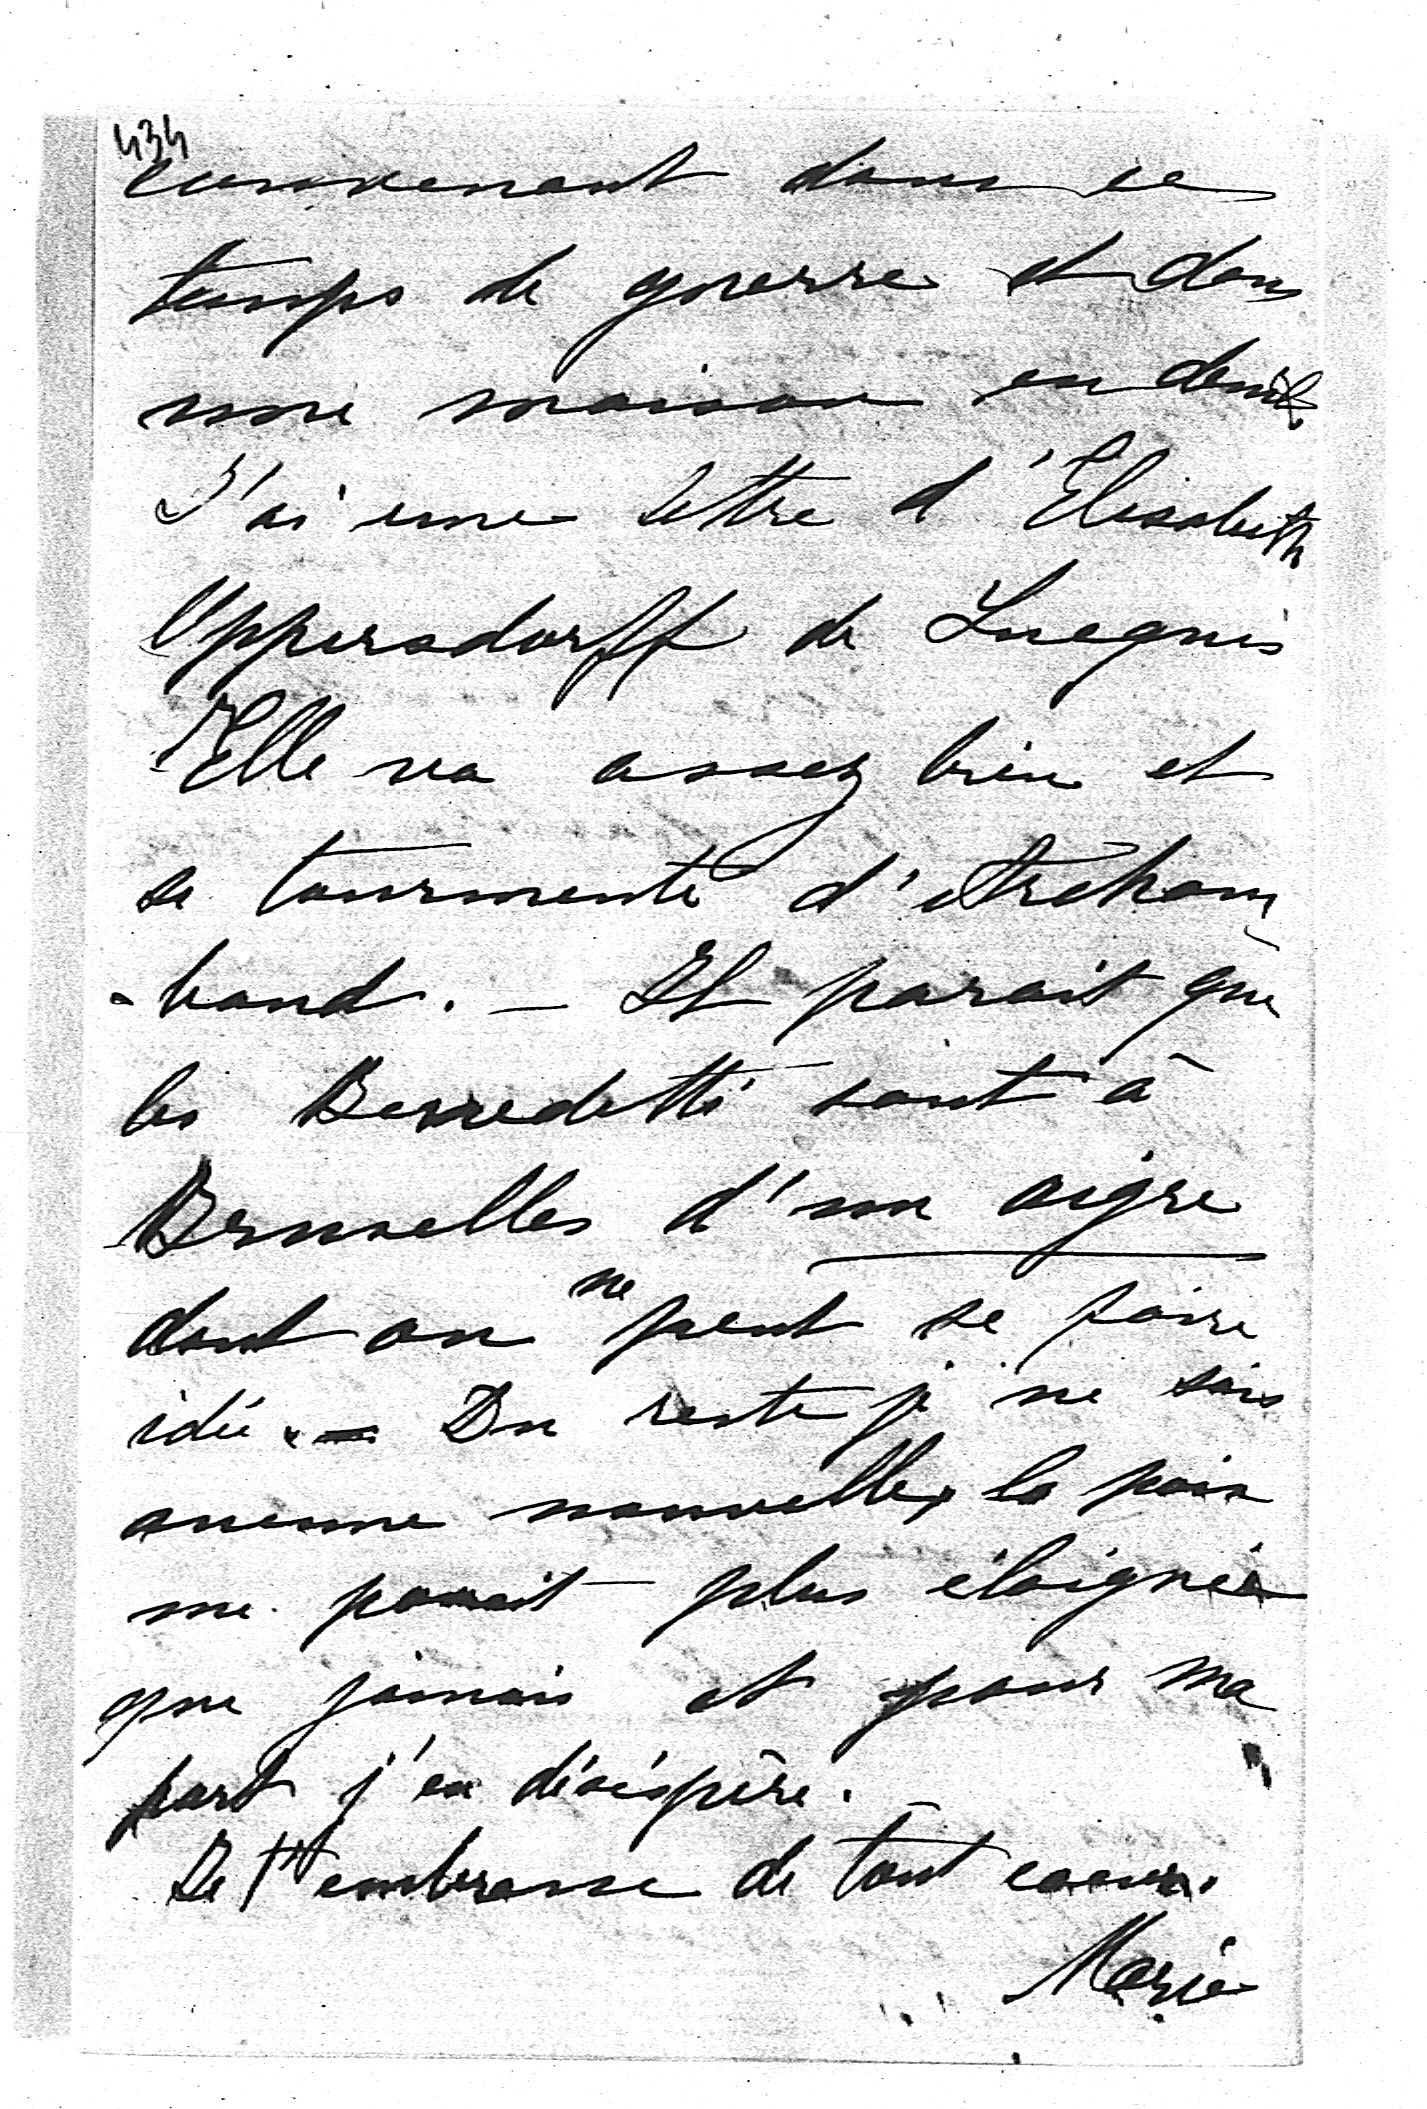 434
convenant dans ce
temps de guerre et dans
une maison en deuil.
J'ai une lettre d'Elisabeth
Oppersdorff de
Elle va assez bien et
se tourmente d'Archam
-baud. — Il parait que
les Benedetti sont à
Bruxelles d'un aigre
dont on ne peut se faire
idée. — Du reste je ne sais
aucune nouvelle, la paix
me parait plus éloignée
que jamais et pour ma
part j'en désespère.
Je t'embrasse de tout coeur.
Marie